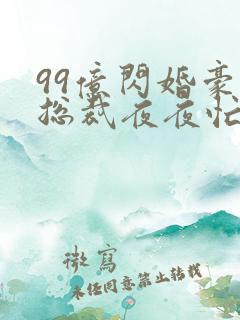 99億閃婚豪
總裁夜夜忙
微寫
未經同意禁止轉載